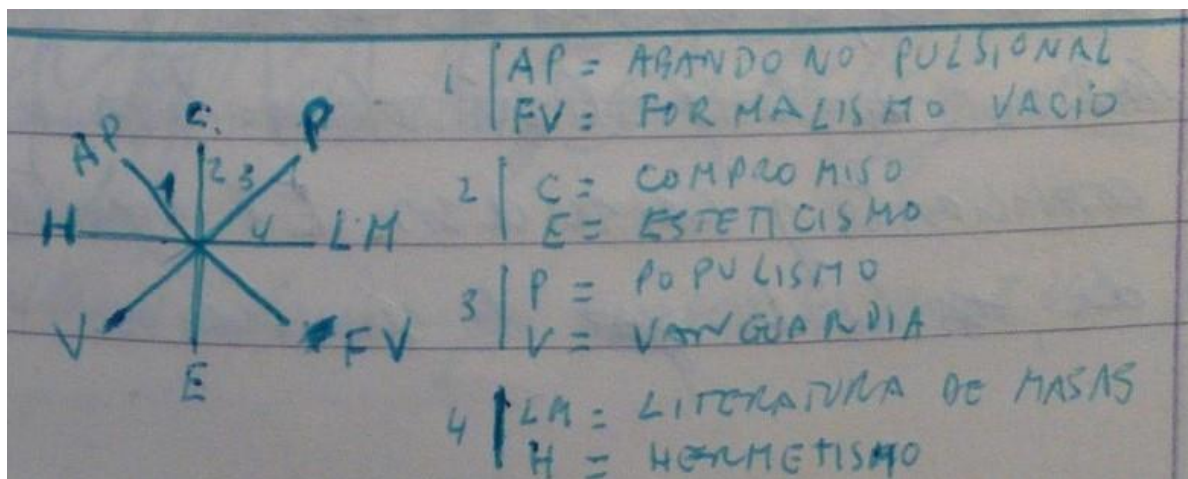 C.
P
AP
1
2
3
4
H
LM
V
FV
E
1 AP = ABANDONO PULSIONAL
FV = FORMALISMO VACIO
2 C = COMPROMISO
E = ESTETICISMO
3 P = POPULISMO
V = VANGUARDIA
4 LM = LITERATURA DE MASAS
H = HERMETISMO